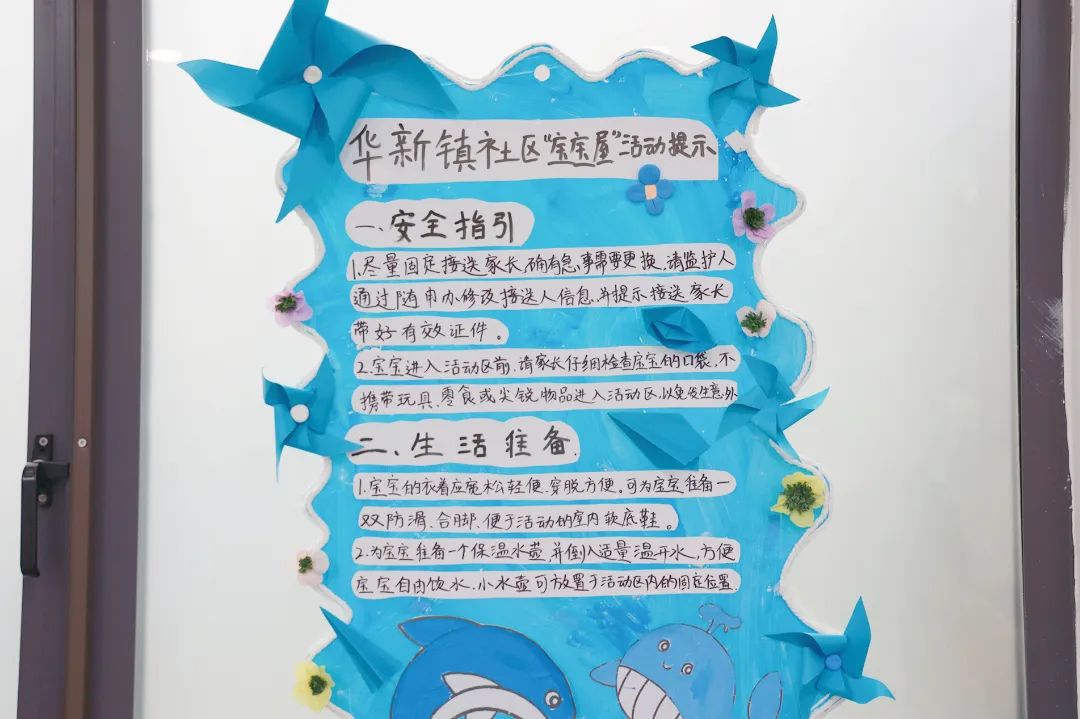 华新镇社区“宝宝屋”活动提示
一、安全指引
1.尽量固定接送家长，确有急事需要更换，请监护人
通过随申办修改接送人信息，并提示接送家长
带好有效证件。
2.宝宝进入活动区前，请家长仔细检查宝宝的口袋，不
携带玩具、零食或尖锐物品进入活动区，以免发生意外
二、生活准备.
1.宝宝的衣着应宽松轻便、穿脱方便。可为宝宝准备一
双防滑、合脚、便于活动的室内软底鞋。
2.为宝宝准备一个保温水壶，并倒入适量温开水，方便
宝宝自由饮水，小水壶可放置于活动区内的固定位置.